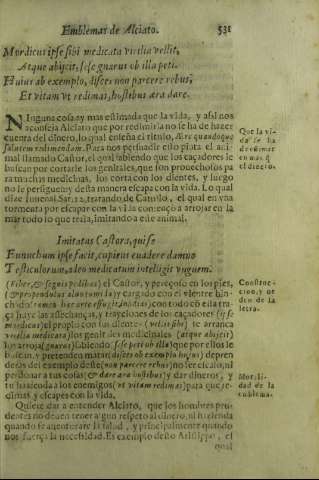 Emblemas de Alciato. 531
Mordicus ipse sibi medicata virilia vellit,
Atque abijcit, sese gnarus ob illa peti.
Huius ab exemplo, disces non parcere rebus,
Et vitam vt redimas, hostibus æra dare.
NInguna cosa ay mas estimada que la vida, y assi nos
aconseja Alciato que por redimirla no se ha de hazer
cuenta del dinero, lo qual enseña el titulo, Aere quandoque
salutem redimendam. Para nos persuadir esto pinta el ani
mal llamado Castor, el qual sabiendo que los caçadores le
buscan por cortarle los genitales, que son prouechosos pa
ra muchas medicinas, los corta con los dientes, y luego
no le persiguen y desta manera escapa con la vida. Lo qual
dize Iuuenal Sat. 12. tratando de Catulo, el qual en vna
tormenta por escapar con la vida començò a arrojar en la
mar todo lo que traia, imitando a este animal.
Que la vi
da se ha
de redimir
en mas q
el dinero.
Imitatus Castora, qui se
Eunuchum ipse facit, cupiens euadere damno
Testiculorum, adeo medicatum intelligit inguen.
(Fiber, & segnis pedibus) el Castor, y pereçoso en los pies,
(& propendulus aluo tumida) y cargado con el vientre hin-
chado
ça huye las assechanças, y trayciones de los caçadores (ipse
mordicus) el propio con sus dientes (vellit sibi) se arranca
virilia medicata) los genitales medicinales (atque abijcit) y
los arroja (gnarus) sabiendo (sese peti ob illa) que por ellos le
buscan, y pretenden matar (disces ob exemplo huius) depren
deras del exemplo deste (non parcere rebus) no ser escaso, ni
perdonar a tus cosas (& dare æra hostibus) y dar dineros, y
tu hazienda a los enemigos (vt vitam redimas) para que re-
dimas, y escapes con la vida.
Construc-
cion, y or
den de la
letra.
Morali-
dad de la
emblema.
Quiere dar a entender Alciato, que los hombres pru-
dentes no deuen tener algun respeto al dinero, ni hazienda
quando se auenturare la salud, y principalmente quando
nos fuerça la necessidad. Es exemplo desto Aristippo, el
qual